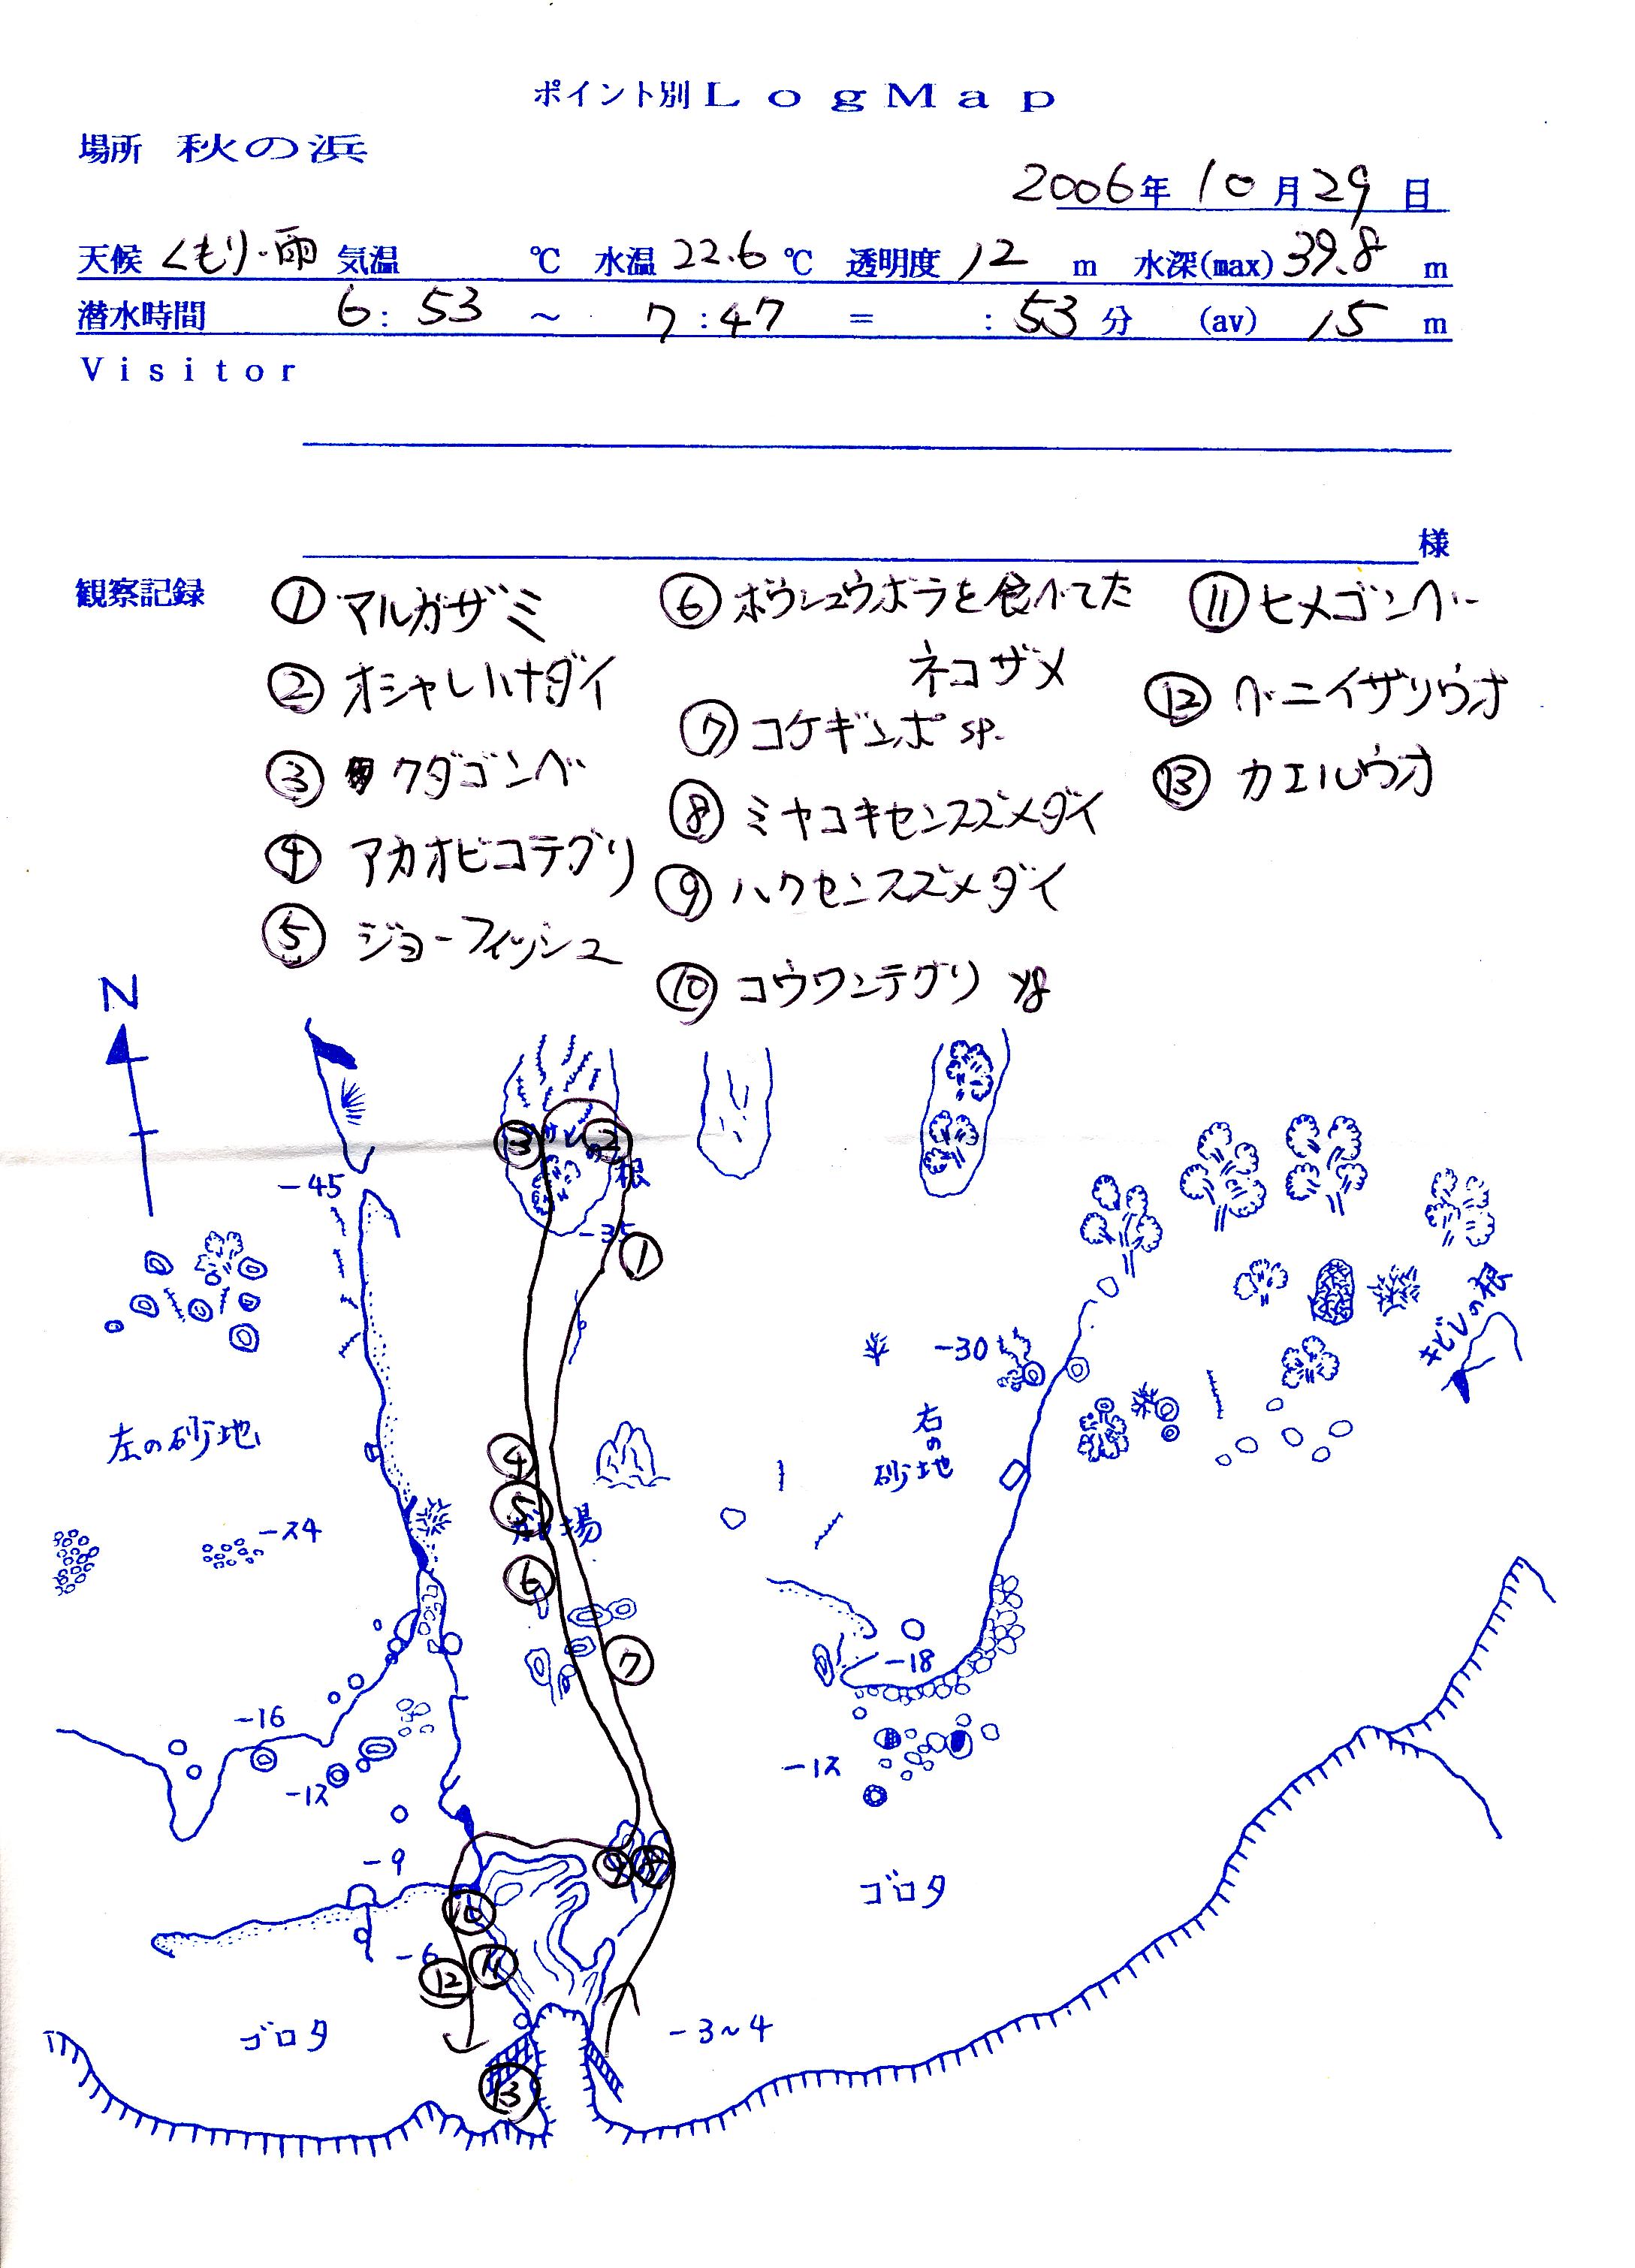 ポイント別LogMap
場所 秋の浜
2006年10月29日
天候 くもり・雨 気温 ℃ 水温 22.6 ℃ 透明度 12 m 水深(max) 39.8 m
潜水時間 6:53 ～ 7:47 = :53分 (av) 15 m
Visitor
様
観察記録
① マルガザミ
② オシャレハナダイ
③ クダゴンベ
④ アカオビコテグリ
⑤ ジョーフィッシュ
⑥ ボウシュウボラを食べてた
ネコザメ
⑦ コケギンポ sp.
⑧ ミヤコキセンスズメダイ
⑨ ハクセンスズメダイ
⑩ コウワンテグリ yg
⑪ ヒメゴンベ
⑫ ベニイザリウオ
⑬ カエルウオ
N
③ ②
根
-45
-35
①
キビレの根
-30
左の砂地
右の
砂地
④
⑤
場
-24
⑥
⑦
-18
-16
-12
-12
-9
⑨ ⑧
ゴロタ
⑩
-6
⑪
⑫
ゴロタ
-3~4
⑬